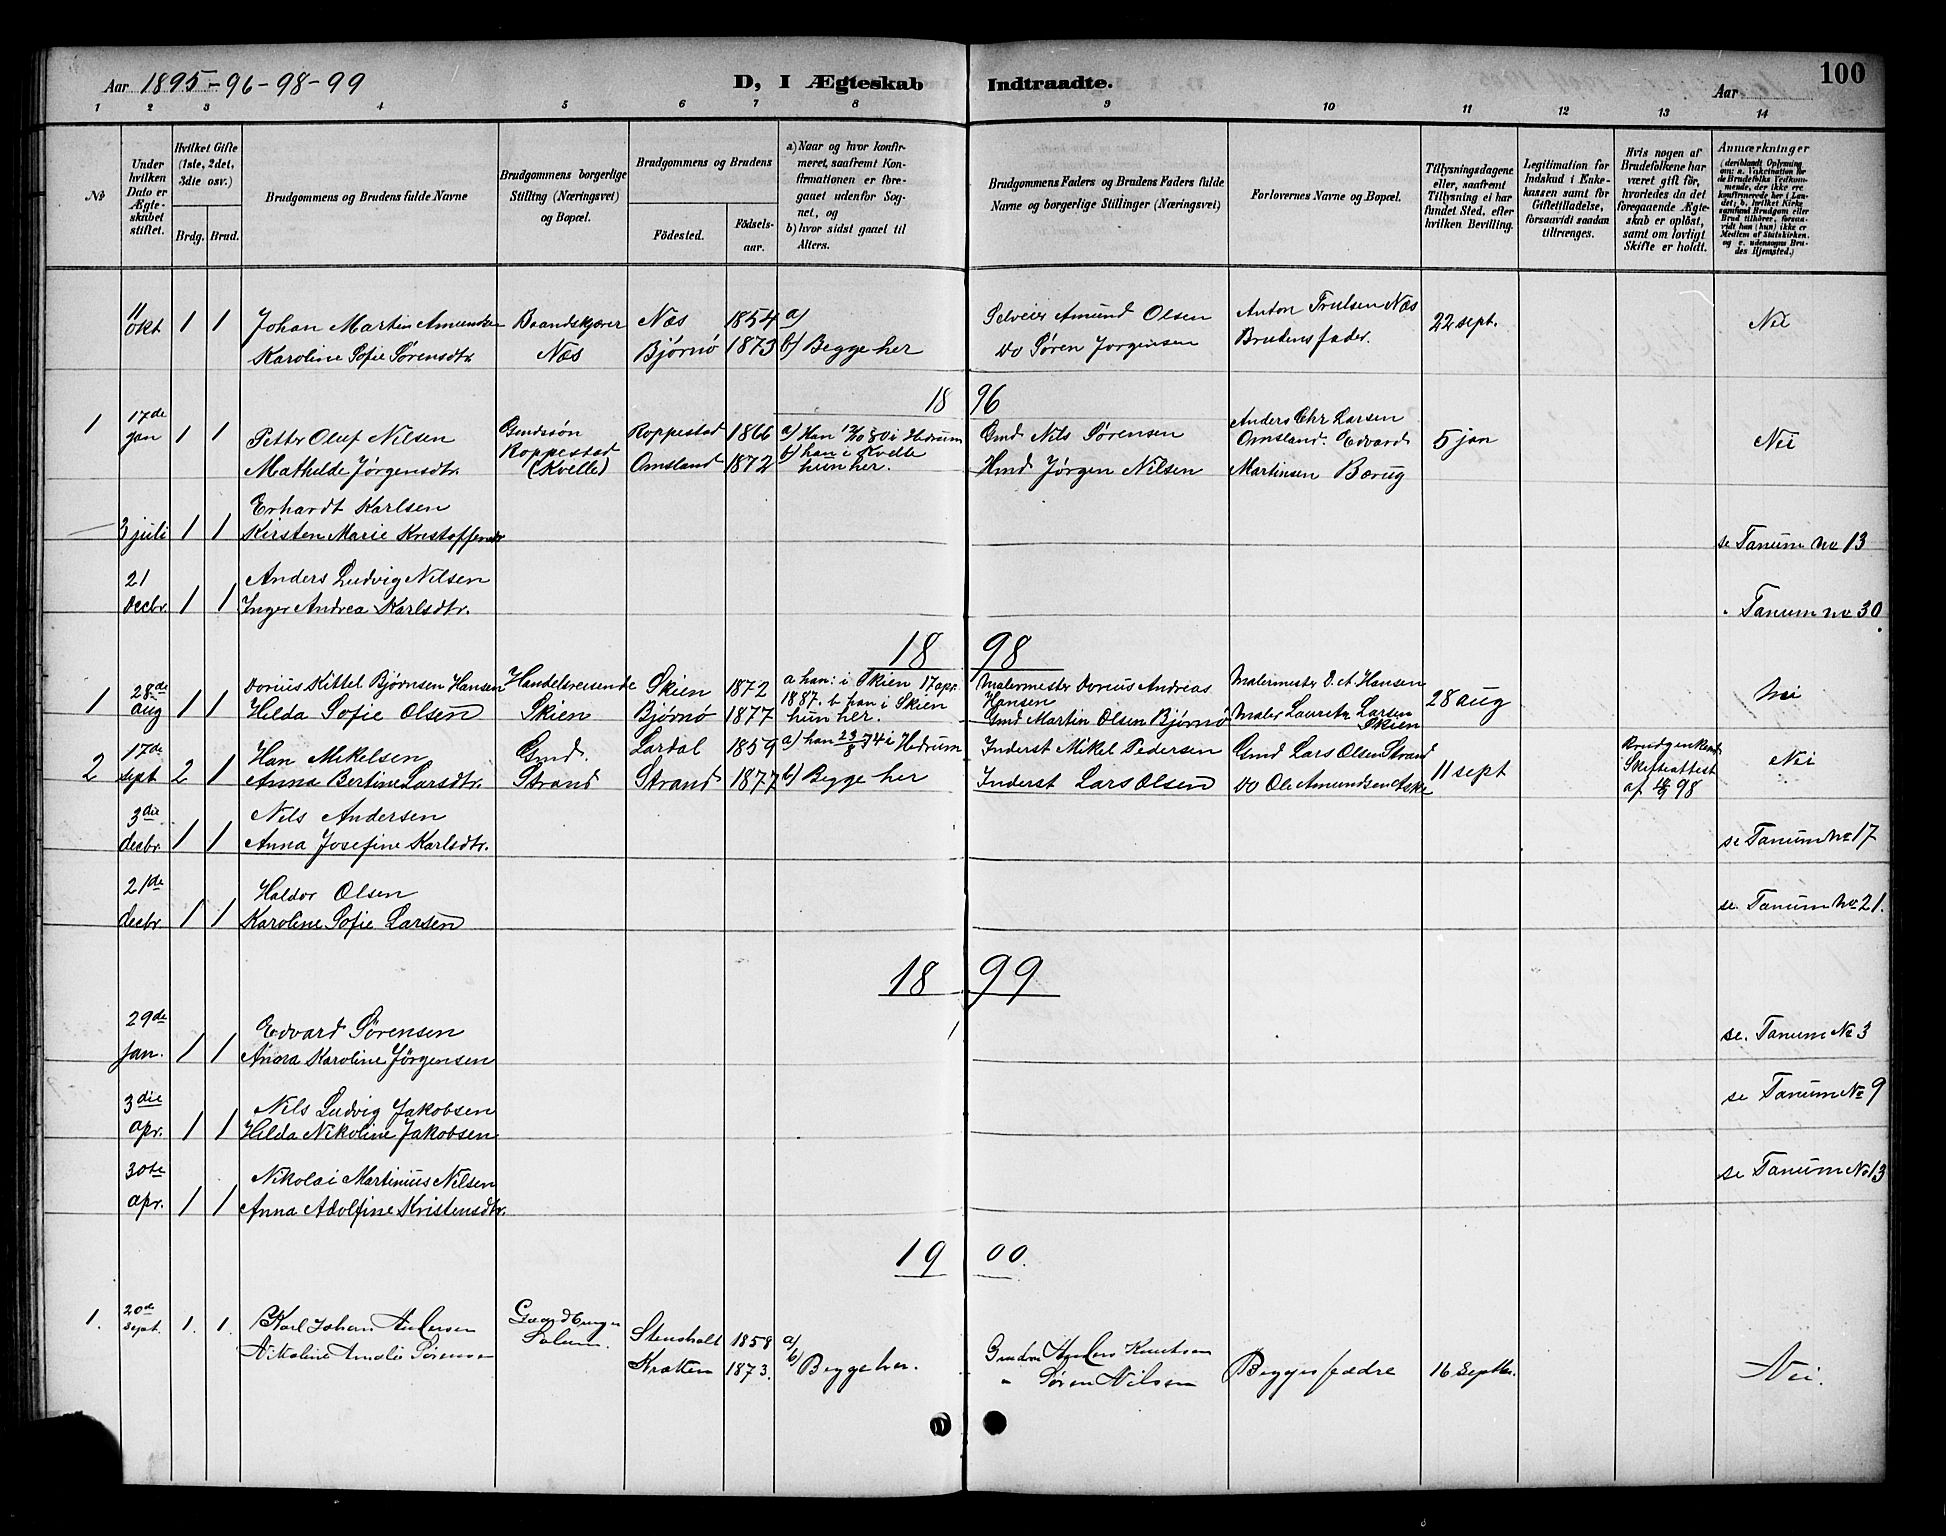 Aar 1895-96-98-99
D, I Ægteskab Indtraadte.
Aar
100
1 2 3 4 5 6 7 8 9 10 11 12 13 14
№
Under hvilken Dato er Ægteskabet stiftet.
Hvilket Gifte (1ste, 2det, 3die osv.)
Brdg. Brud.
Brudgommens og Brudens fulde Navne
Brudgommens borgerlige Stilling (Næringsvei) og Bopæl.
Brudgommens og Brudens
Fødested.
Fødselsaar.
a) Naar og hvor konfirmeret, saafremt Konfirmationen er foregaaet udenfor Sognet, og
b) hvor sidst gaaet til Alters.
Brudgommens Faders og Brudens Faders fulde Navne og borgerlige Stillinger (Næringsvei)
Forlovernes Navne og Bopæl.
Tillysningsdagene eller, saafremt Tillysning ei har fundet Sted, efter hvilken Bevilling.
Legitimation for Indskud i Enkekassen samt for Giftetilladelse, forsaavidt saadan tiltrænges.
Hvis nogen af Brudefolkene har været gift før, hvorledes da det foregaaende Ægteskab er opløst, samt om lovligt Skifte er holdt.
Anmærkninger
(deriblandt Oplysning om: a. Vakcination for de Brudefolks Vedkommende, der ikke ere konfirmerede her i Landet; b. hvilket Kirkesamfund Brudgom eller Brud tilhører, forsaavidt han (hun) ikke er Medlem af Statskirken, og c. udensogns Brudes Hjemsted.)
11 okt 1 1 Johan Martin Amundsen Brandskjærer Næs 1854 a) Selveier Amund Olsen Anton Trulsen Næs 22 sept. Nei
Karoline Sofie Sørensdtr. Næs Bjørnø 1873 b) Begge her Do Søren Jorgensen Brudens fader.
18 96
1 17de jan 1 1 Petter Oluf Nilsen Gmdssøn Roppestad 1866 a) Han 12/10 80 i Hedrum Gmd Nils Sørensen Anders Chr Larsen 5 jan Nei
Mathilde Jørgensdtr. Roppestad (Kvelle) Omsland 1872 b) han i Kvelle hun her. Hmd Jørgen Nilsen Omsland. Edvard Martinsen Bærug
3 juli 1 1 Erhardt Karlsen
Kirsten Marie Kristoffersdtr se Tanum no 13
21 decbr. 1 1 Anders Ludvig Nilsen
Inger Andrea Karlsdtr. " Tanum no 30.
18 98
1 28de aug 1 1 Dorius Kittel Bjørnsen Hansen Handelsreisende Skien 1872 a han: i Skien 17 apr. 1887. b han i Skien Malermester Dorius Andreas Hansen Malermester D. A. Hansen 28 aug Nei
Hilda Sofie Olsen Skien Bjørnø 1877 hun her. Gmd Martin Olsen Bjørnø Maler Lauritz Larsen Skien
2 17de sept 2 1 Han Mikelsen Gmd. Lardal 1859 a) han 29/8 74 i Hedrum Inderst Mikel Pedersen Gmd Lars Olsen Strand 11 sept Skifteattest Nei
Anna Bertine Larsdtr. Strand Strand 1877 b) Begge her Inderst Lars Olsen Do Ole Amundsen Aske af 98
3die decbr. 1 1 Nils Andersen
Anna Josefine Karlsdtr. se Tanum no 17
21de decbr. 1 1 Haldor Olsen
Karoline Sofie Larsen se. Tanum no 21.
18 99
29de jan. 1 1 Edvard Sørensen
Anna Karoline Jørgensen se. Tanum No 3
3die apr. 1 1 Nils Ludvig Jakobsen
Hilda Nikoline Jakobsen se Tanum No 9
30te apr. 1 1 Nikolai Martinius Nilsen
Anna Adolfine Kristensdtr. se Tanum No 13
19 00.
1. 20de Sept. 1. 1. Karl Johan Andersen Gaardbruger Stensholt 1858 a) Anders Knutsen Begges fædre 16 Septbr. Nei.
Amalie Sørensen Solum. Kratten 1873. b) Begge her. " Søren Nilsen